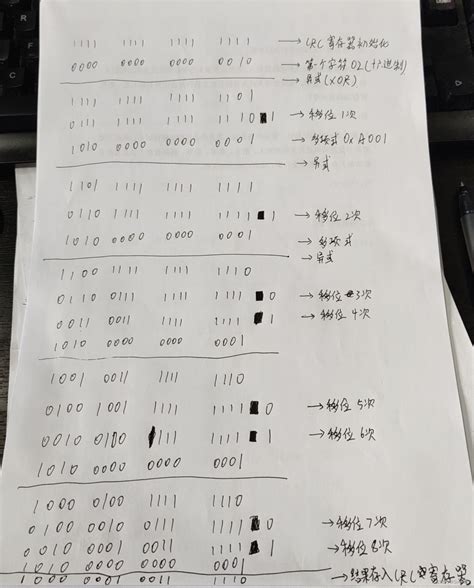 1111 1111 1111 1111 →CRC寄存器初始化
0000 0000 0000 0010 →第一个字符02(十六进制)
→异或(XOR)
1111 1111 1111 1101
0111 1111 1111 1110 1 →移位1次
1010 0000 0000 0001 →多项式0xA001
→异或
1101 1111 1111 1111
0110 1111 1111 1111 1 →移位2次
1010 0000 0000 0001 →多项式
→异或
1100 1111 1111 1110
0110 0111 1111 1111 0 →移位3次
0011 0011 1111 1111 1 →移位4次
1010 0000 0000 0001
1001 0011 1111 1110
0100 1001 1111 1111 0 →移位5次
0010 0100 1111 1111 1 →移位6次
1010 0000 0000 0001
1000 0100 1111 1110
0100 0010 0111 1111 0 →移位7次
0010 0001 0011 1111 1 →移位8次
1010 0000 0000 0001
1000 0001 0011 1110 →结果存入CRC寄存器